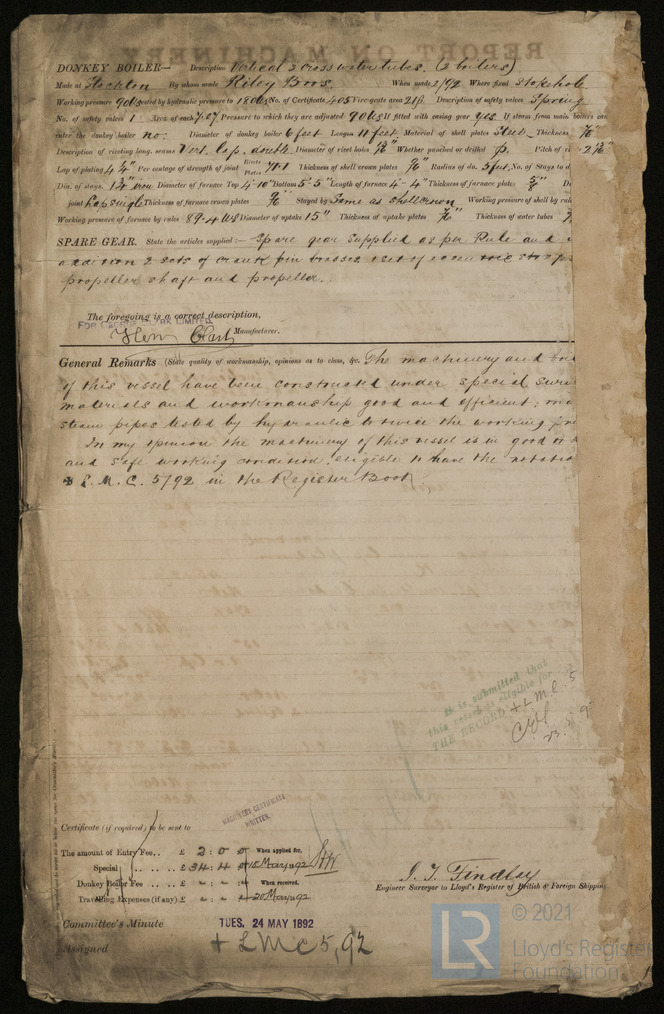 REPORT ON MACHINERY
DONKEY BOILER— Description Vertical 2 cross water tubes. (2 boilers)
Made at Stockton By whom made Riley Bros. When made 2/92 Where fixed Stokehole
Working pressure 90 lbs tested by hydraulic pressure to 180 lbs No. of Certificate 405 Fire grate area 21 ft Description of safety valves Spring
No. of safety valves 1 Area of each 7.07 Pressure to which they are adjusted 90 lbs If fitted with easing gear yes If steam from main boilers can
enter the donkey boiler no. Diameter of donkey boiler 6 feet Length 11 feet Material of shell plates Steel Thickness
Description of riveting long. seams Vert. Lap. double. Diameter of rivet holes Whether punched or drilled p. Pitch of
Lap of plating 4¼" Per centage of strength of joint Rivets Plates 71.1 Thickness of shell crown plates Radius of do. 5 feet No. of Stays to d
Dia. of stays. Diameter of furnace Top 4-10" Bottom 5-5" Length of furnace 4-4" Thickness of furnace plates
joint Lap single Thickness furnace crown plates Stayed by Same as shell crown Working pressure of shell by rul
Working pressure of furnace by rules 89.4 lbs Diameter of uptake 15" Thickness of uptake plates Thickness of water tubes
SPARE GEAR. State the articles supplied:— Spare gear supplied as per Rule and i
addition 2 sets of crank pin brasses 1 set of eccentric straps
propeller shaft and propeller.
The foregoing is a correct description,
FOR GEORGE CLARK LIMITED.
Clark Manufacturer.
General Remarks (State quality of workmanship, opinions as to class, &c. The machinery and boi
of this vessel have been constructed under special surv
materials and workmanship good and efficient; ma
steam pipes tested by hydraulic to twice the working pre
In my opinion the machinery of this vessel is in good ord
and safe working condition, eligible to have the notatio
✠ L.M.C. 5/92 in the Register Book
It is submitted that
this vessel is eligible for
THE RECORD + L.M.C. 5
MACHINERY CERTIFICATE
WRITTEN.
Certificate (if required) to be sent to
The amount of Entry Fee.. £ 2 : 0 : 0 When applied for,
Special .. .. .. .. £ 34 : 4 : 0 18 May 1892
Donkey Boiler Fee .. .. £ - : - : - When received,
Travelling Expenses (if any) £ - : - : - 20 May 1892
Engineer Surveyor to Lloyd's Register of British & Foreign Shipping
J. T. Findlay
Committee's Minute TUES. 24 MAY 1892
Assigned + LMC 5,92
LR
© 2021
Lloyd's Register
Foundation